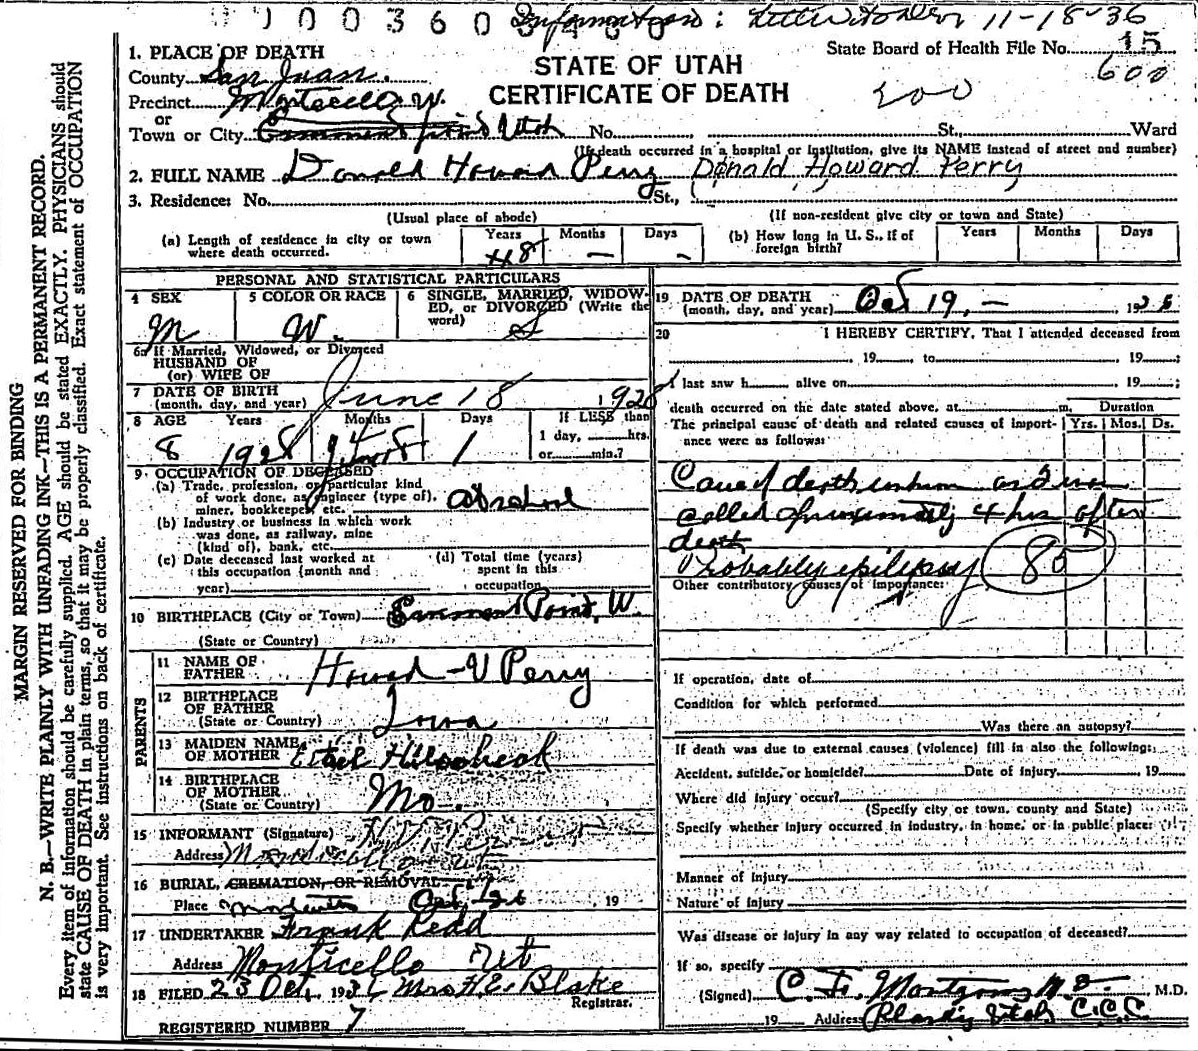 000360
Information: 11-18-36
MARGIN RESERVED FOR BINDING
N. B.—WRITE PLAINLY WITH UNFADING INK—THIS IS A PERMANENT RECORD.
Every item of information should be carefully supplied. AGE should be stated EXACTLY. PHYSICIANS should
state CAUSE OF DEATH in plain terms, so that it may be properly classified. Exact statement of OCCUPATION
is very important. See instructions on back of certificate.
State Board of Health File No. 15
600
200
STATE OF UTAH
CERTIFICATE OF DEATH
1. PLACE OF DEATH
County San Juan.
Precinct Monticello W.
or
Town or City Utah No. St., Ward
(If death occurred in a hospital or institution, give its NAME instead of street and number)
2. FULL NAME Donald Howard Perry Donald Howard Perry
3. Residence: No. St.,
(Usual place of abode) (If non-resident give city or town and State)
(a) Length of residence in city or town where death occurred. Years Months Days
(b) How long in U. S., if of foreign birth? Years Months Days
PERSONAL AND STATISTICAL PARTICULARS
4 SEX M
5 COLOR OR RACE W.
6 SINGLE, MARRIED, WIDOWED, OR DIVORCED (Write the word) S
6a If Married, Widowed, or Divorced
HUSBAND OF
(or) WIFE OF
7 DATE OF BIRTH
(month, day, and year) June 18 1928
8 AGE Years Months Days If LESS than
8 4 1 1 day, hrs.
or min.?
9 OCCUPATION OF DECEASED
(a) Trade, profession, or particular kind
of work done, as engineer (type of),
miner, bookkeeper, etc. at school
(b) Industry or business in which work
was done, as railway, mine
(kind of), bank, etc.
(c) Date deceased last worked at
this occupation (month and
year)
(d) Total time (years)
spent in this
occupation
10 BIRTHPLACE (City or Town) Point, W.
(State or Country)
PARENTS
11 NAME OF FATHER Howard V Perry
12 BIRTHPLACE OF FATHER
(State or Country) Iowa
13 MAIDEN NAME OF MOTHER Ethel
14 BIRTHPLACE OF MOTHER
(State or Country) Mo.
15 INFORMANT (Signature)
Address Monticello
16 BURIAL, CREMATION, OR REMOVAL
Place Oct, 19
17 UNDERTAKER Frank Redd
Address Monticello Ut
18 FILED 23 Oct, 1936 Mrs H. E. Blake
Registrar.
REGISTERED NUMBER 7
19 DATE OF DEATH
(month, day, and year) Oct 19, — 19
20 I HEREBY CERTIFY, That I attended deceased from
, 19 , to , 19 ;
I last saw h alive on , 19 ;
death occurred on the date stated above, at m.
The principal cause of death and related causes of importance were as follows:
Duration
Yrs. Mos. Ds.
Cause of death unknown as I was
called approximately 4 hrs after
death
Probably epilepsy 85
Other contributory causes of importance:
If operation, date of
Condition for which performed
Was there an autopsy?
If death was due to external causes (violence) fill in also the following:
Accident, suicide, or homicide? Date of injury , 19
Where did injury occur?
(Specify city or town, county and State)
Specify whether injury occurred in industry, in home, or in public place:
Manner of Injury
Nature of injury
Was disease or injury in any way related to occupation of deceased?
If so, specify
(Signed) M.D. M.D.
19 Address Utah C.C.C